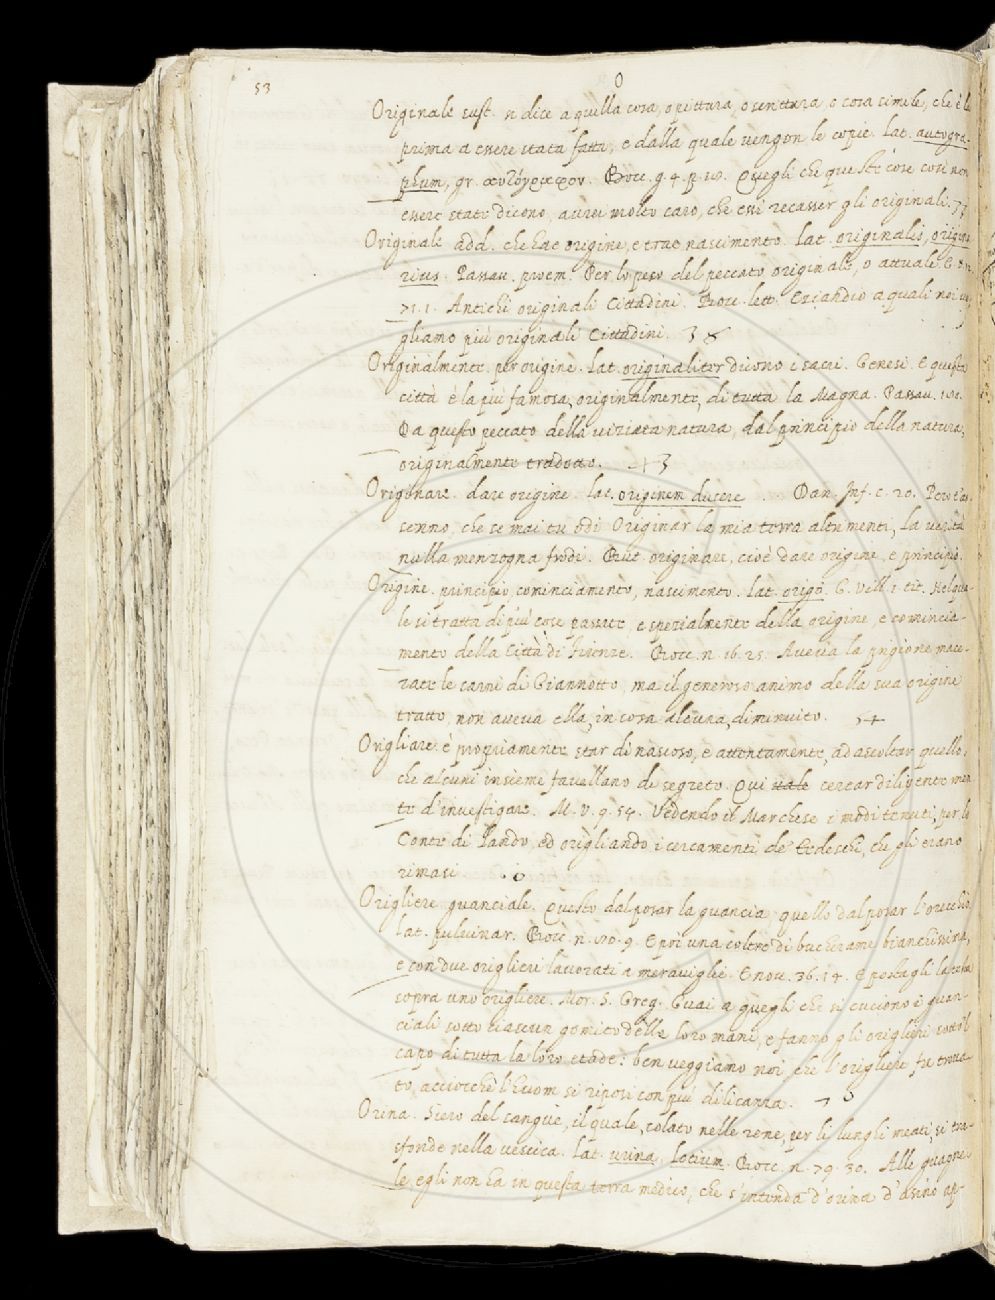 53
O
Originale sust. si dice a quella cosa, o pittura, o scrittura, o cosa simile, che è la
prima a essere stata fatta, e dalla quale vengon le copie. Lat. autogra-
phum, gr. αυτόγραφον. Bocc. g. 4. p. 10. Quegli che queste cose così non
essere state dicono, avrei molto caro, che essi recasser gli originali.
Originale add. che hae origine, e trae nascimento. Lat. originalis, origina
rius. Passav. proem. Per lo peso del peccato originale, o attuale. G. V.
71. 1. Antichi originali Cittadini. Bocc. lett. Eziandio a quali noi vo
gliamo più originali Cittadini.
Originalmente. per origine. Lat. originaliter dicono i sacri. Genesi. E questa
città è la più famosa, originalmente, di tutta la Magna. Passav.
Da questo peccato della viziata natura, dal principio della natura,
originalmente tradotto. 43
Originare. dare origine lat. originem ducere. Dan. Inf. c. 20. Però t'as
senno, che se mai tu odi Originar la mia terra altrimenti, la verità
nulla menzogna frodi. But. originare, cioè dare origine, e principio.
Origine. principio, cominciamento, nascimento. Lat. origo. G. Vill. 1. tit. Nel qua-
le si tratta di più cose passate, e spezialmente della origine, e comincia-
mento della Città di Firenze. Bocc. n. 16. 25. Aveva la prgione mace-
rate le carni di Giannotto, ma il generoso animo della sua origine
tratto, non aveva ella, in cosa alcuna, diminuito. 54
Origliare. è propriamente star di nascoso, e attentamente, ad ascoltar quello,
che alcuni insieme favellano di segreto. Qui vale cercar diligente men
te d'investigare. M. V. 9. 54. Vedendo il Marchese i modi tenuti, per lo
Conte di Lando, ed origliando i cercamenti de Tedeschi, che gli erano
rimasi
Origliere guanciale. Questo dal posar la guancia, quello dal posar l'orecchio
Lat. pulvinar. Bocc. n. 80. 9. E poi una coltre di bucherame bianchissima,
e con due origlieri lavorati a meraviglie. E nov. 36. 14. E postagli la testa
sopra uno origliere. Mor. S. Greg. Guai a quegli che si cuciono i guan-
ciali sotto ciascun gomito delle loro mani, e fanno gli origlieri sotto'l
capo di tutta la loro etade: ben veggiamo noi che l'origliere fu trova-
to, acciocchè l'huom si riposi con più dilicanza.
Orina. Siero del sangue, il quale, colato nelle rene, per li lunghi meati, si tra-
sfonde nella vescica. Lat. urina, lotium. Bocc. n. 79. 30. Alle guagne-
le, egli non ha in questa terra medico, che s'intenda d'orina d'asino ap-